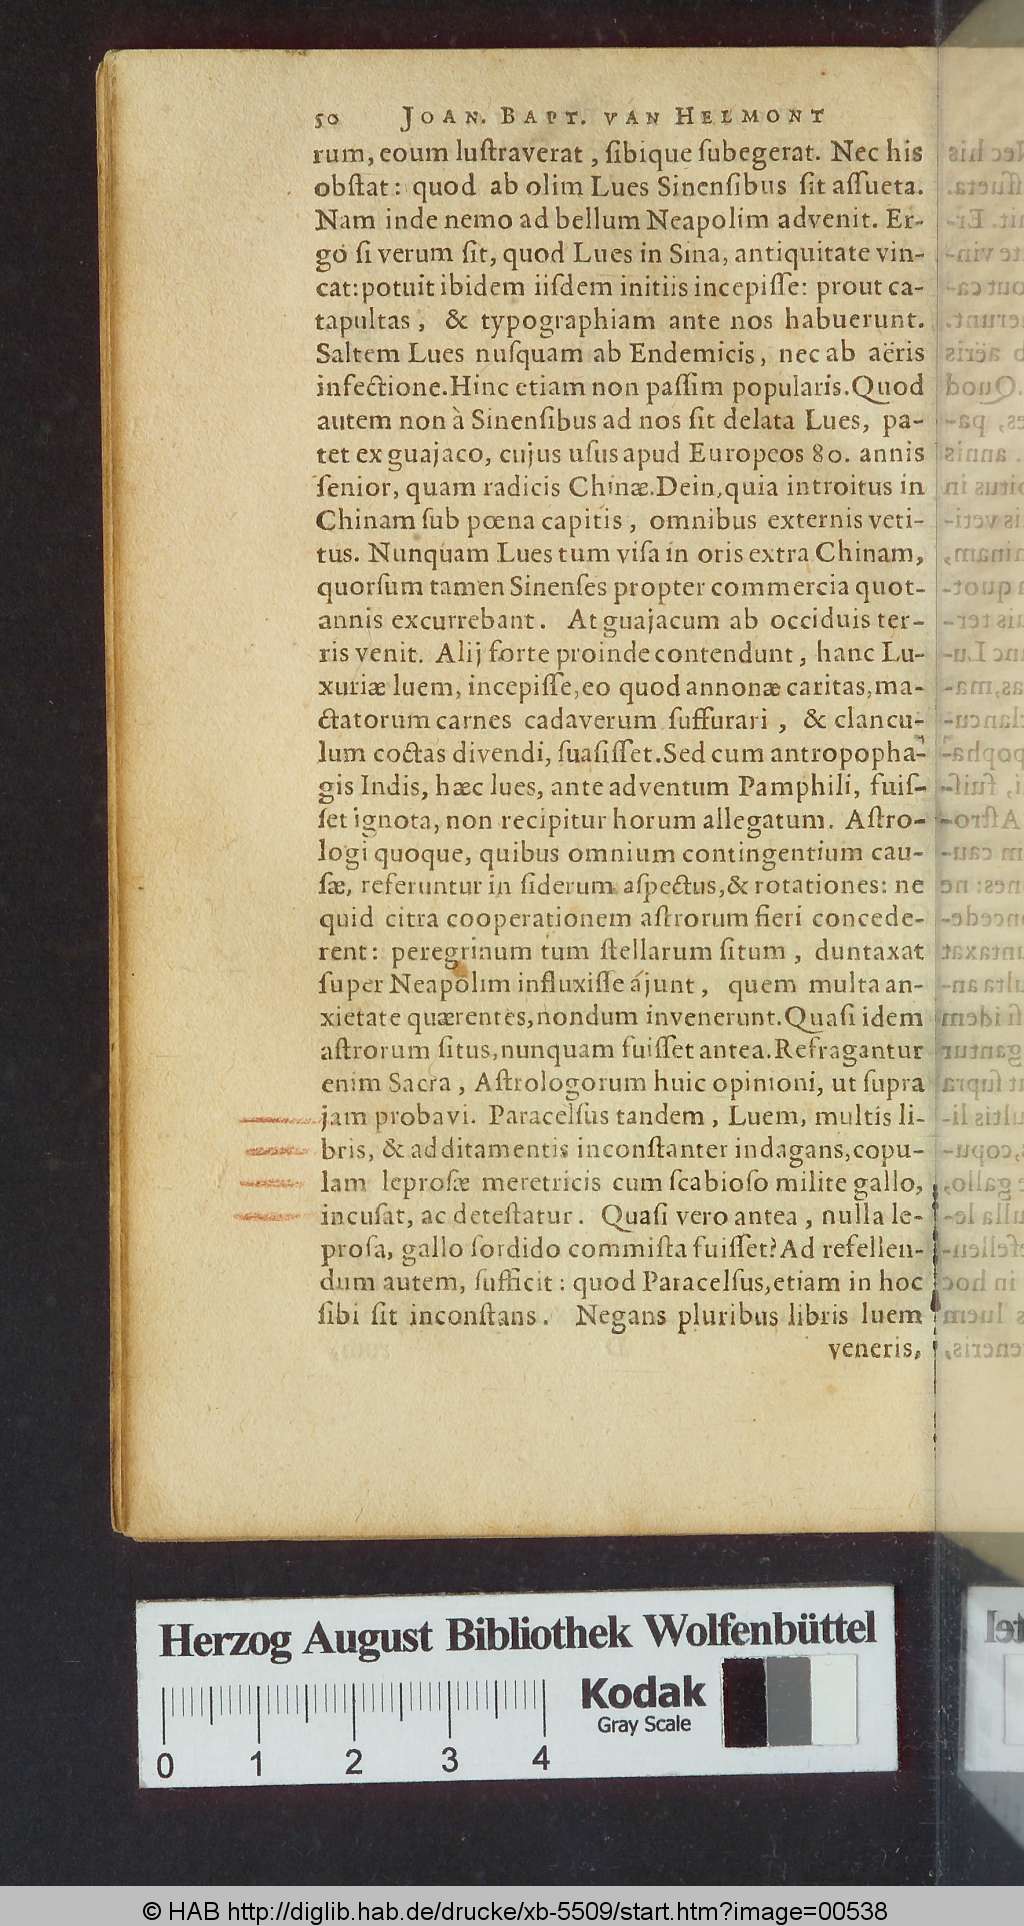 50 JOAN. BAPT. VAN HELMONT
rum, eoum luſtraverat, ſibique ſubegerat. Nec his
obſtat: quod ab olim Lues Sinenſibus ſit aſſueta.
Nam inde nemo ad bellum Neapolim advenit. Er-
gò ſi verum ſit, quod Lues in Sina, antiquitate vin-
cat: potuit ibidem iiſdem initiis incepiſſe: prout ca-
tapultas, & typographiam ante nos habuerunt.
Saltem Lues nuſquam ab Endemicis, nec ab aëris
infectione. Hinc etiam non paſſim popularis. Quod
autem non à Sinenſibus ad nos ſit delata Lues, pa-
tet ex guajaco, cujus uſus apud Europeos 80. annis
ſenior, quam radicis Chinæ. Dein, quia introitus in
Chinam ſub pœna capitis, omnibus externis veti-
tus. Nunquam Lues tum viſa in oris extra Chinam,
quorſum tamen Sinenſes propter commercia quot-
annis excurrebant. At guajacum ab occiduis ter-
ris venit. Alij forte proinde contendunt, hanc Lu-
xuriæ luem, incepiſſe, eo quod annonæ caritas, ma-
ctatorum carnes cadaverum ſuffurari, & clancu-
lum coctas divendi, ſuaſiſſet. Sed cum antropopha-
gis Indis, hæc lues, ante adventum Pamphili, fuiſ-
ſet ignota, non recipitur horum allegatum. Aſtro-
logi quoque, quibus omnium contingentium cau-
ſæ, referuntur in ſiderum aſpectus, & rotationes: ne
quid citra cooperationem aſtrorum fieri concede-
rent: peregrinum tum ſtellarum ſitum, duntaxat
ſuper Neapolim influxiſſe ájunt, quem multa an-
xietate quærentes, nondum invenerunt. Quaſi idem
aſtrorum ſitus, nunquam fuiſſet antea. Refragantur
enim Sacra, Aſtrologorum huic opinioni, ut ſupra
jam probavi. Paracelſus tandem, Luem, multis li-
bris, & additamentis inconſtanter indagans, copu-
lam leproſæ meretricis cum ſcabioſo milite gallo,
incuſat, ac deteſtatur. Quaſi vero antea, nulla le-
proſa, gallo ſordido commiſta fuiſſet? Ad refellen-
dum autem, ſufficit: quod Paracelſus, etiam in hoc
ſibi ſit inconſtans. Negans pluribus libris luem
veneris,
Herzog August Bibliothek Wolfenbüttel
Kodak
Gray Scale
0 1 2 3 4
© HAB http://diglib.hab.de/drucke/xb-5509/start.htm?image=00538